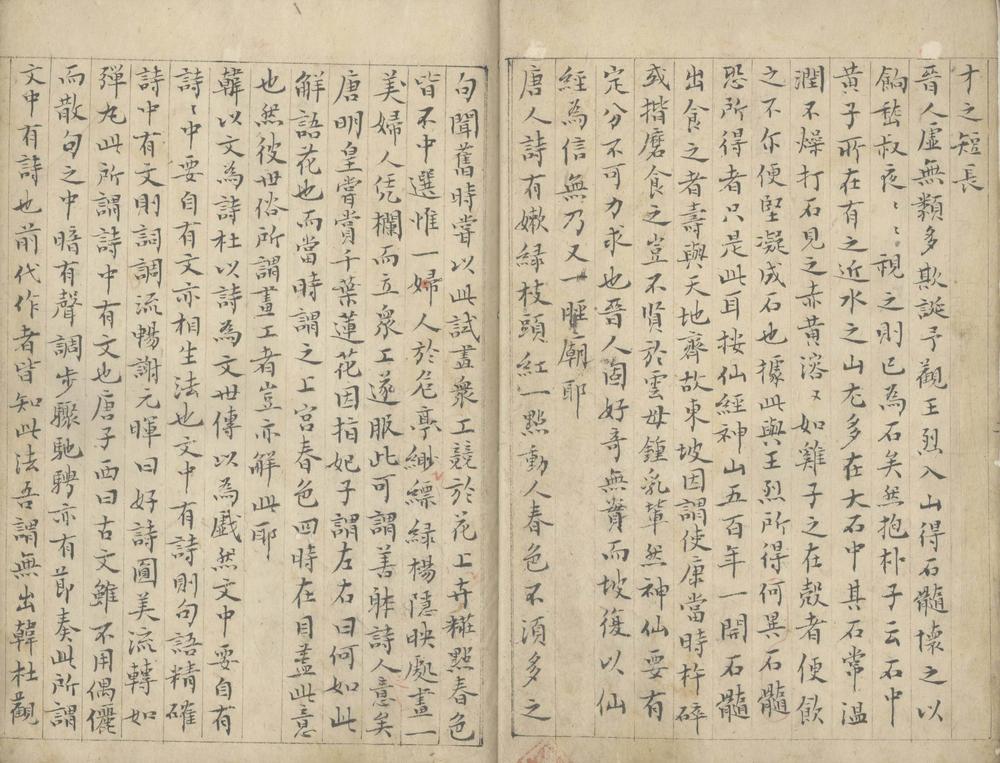 才之短長
晉人虛無類多欺誕予觀王烈入山得石髓懷之以
餉嵇叔夜〻〻視之則已為石矣然抱朴子云石中
黃子所在有之近水之山尤多在大石中其石常溫
潤不燥打石見之赤黃溶〻如雞子之在殼者便飲
之不尔便堅凝成石也據此與王烈所得何異石髓
恐所得者只是此耳按仙經神山五百年一開石髓
出食之者壽與天地齊故東坡因謂使康當時杵碎
或揩磨食之豈不賢於雲母鍾乳輩然神仙要有
定分不可力求也晉人固好奇無實而坡復以仙
經為信無乃又一睡廟耶
唐人詩有嫩緑枝頭紅一點動人春色不須多之
句聞舊時嘗以此試畫衆工競於花上卉糚點春色
皆不中選惟一婦人於危亭縹緑楊隱映處畫一
美婦人凭欄而立衆工遂服此可謂善躰詩人意矣
唐明皇嘗賞千葉蓮花因指妃子謂左右曰何如此
解語花也而當時謂之上宮春色四時在目盖此意
也然彼世俗所謂畫工者豈亦解此耶
韓以文為詩杜以詩為文世傳以為戲然文中要自有
詩〻中要自有文亦相生法也文中有詩則句語精確
詩中有文則詞調流暢謝元暉曰好詩圓美流轉如
彈丸此所謂詩中有文也唐子西曰古文雖不用偶儷
而散句之中暗有聲調步驟馳騁亦有節奏此所謂
文中有詩也前代作者皆知此法吾謂無出韓杜觀